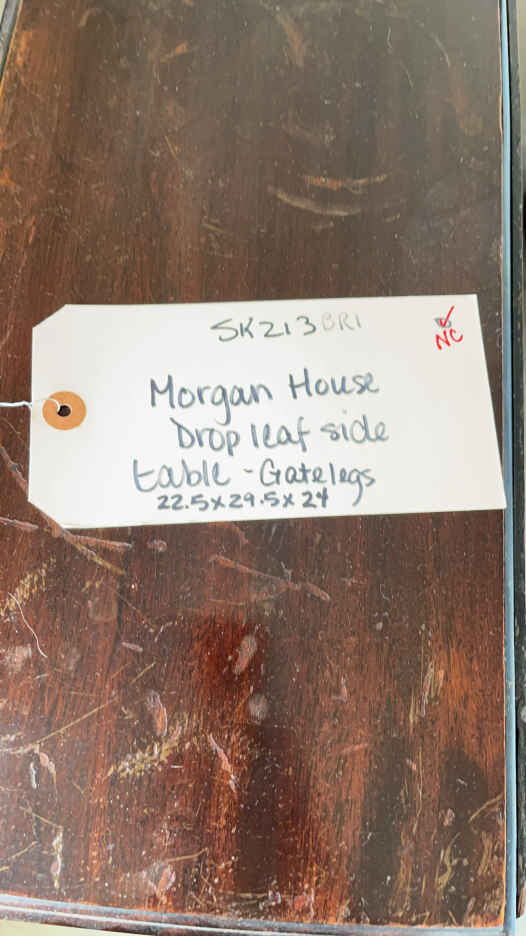 SK213BR1
NC
Morgan House
Drop leaf side
table - Gatelegs
22.5x29.5x24